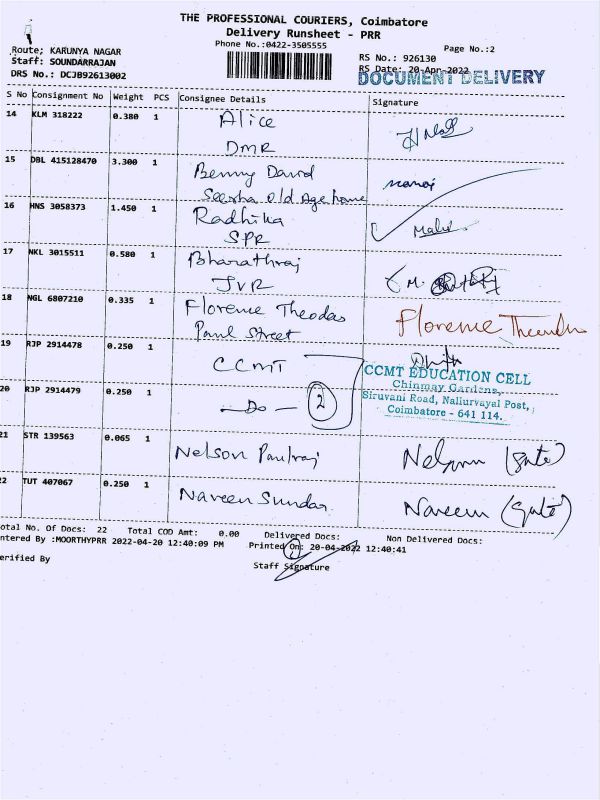 THE PROFESSIONAL COURIERS, Coimbatore
Delivery Runsheet - PRR
Phone No.:0422-3505555
Page No.:2
Route; KARUNYA NAGAR
Staff: SOUNDARRAJAN
DRS No.: DCJB92613002
RS No.: 926130
RS Date: 20-Apr-2022
DOCUMENT DELIVERY
S No Consignment No Weight PCS Consignee Details Signature
14 KLM 318222 0.380 1 Alice
DMR
15 DBL 415128470 3.300 1 Benny David
Seesha Old Age home
manoj
16 HNS 3058373 1.450 1 Radhika
SPR
17 NKL 3015511 0.580 1 Bharathraj
JVR
18 NGL 6807210 0.335 1 Florence Theodas
Paul Street
Florence
19 RJP 2914478 0.250 1 CCMT
CCMT EDUCATION CELL
Chinmay Gardens,
Siruvani Road, Nallurvayal Post,
Coimbatore - 641 114.
20 RJP 2914479 0.250 1 -Do- 2
21 STR 139563 0.065 1 Nelson Paulraj Nelson (gate)
22 TUT 407067 0.250 1 Naveen Sundar Naveen (gate)
otal No. Of Docs: 22 Total COD Amt: 0.00 Delivered Docs: Non Delivered Docs:
ntered By :MOORTHYPRR 2022-04-20 12:40:09 PM Printed On: 20-04-2022 12:40:41
erified By
Staff Signature